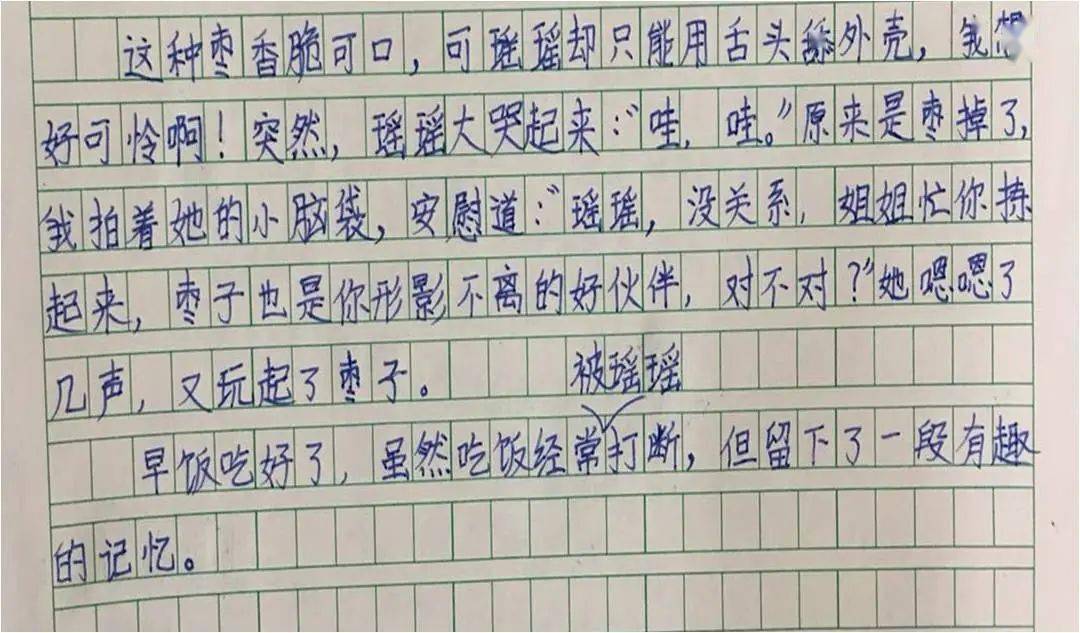 这种枣香脆可口，可瑶瑶却只能用舌头舔外壳，我想
好可怜啊！突然，瑶瑶大哭起来：“哇，哇。”原来是枣掉了，
我拍着她的小脑袋，安慰道：“瑶瑶，没关系，姐姐忙你拣
起来，枣子也是你形影不离的好伙伴，对不对？”她嗯嗯了
几声，又玩起了枣子。
被瑶瑶
早饭吃好了，虽然吃饭经常打断，但留下了一段有趣
的记忆。